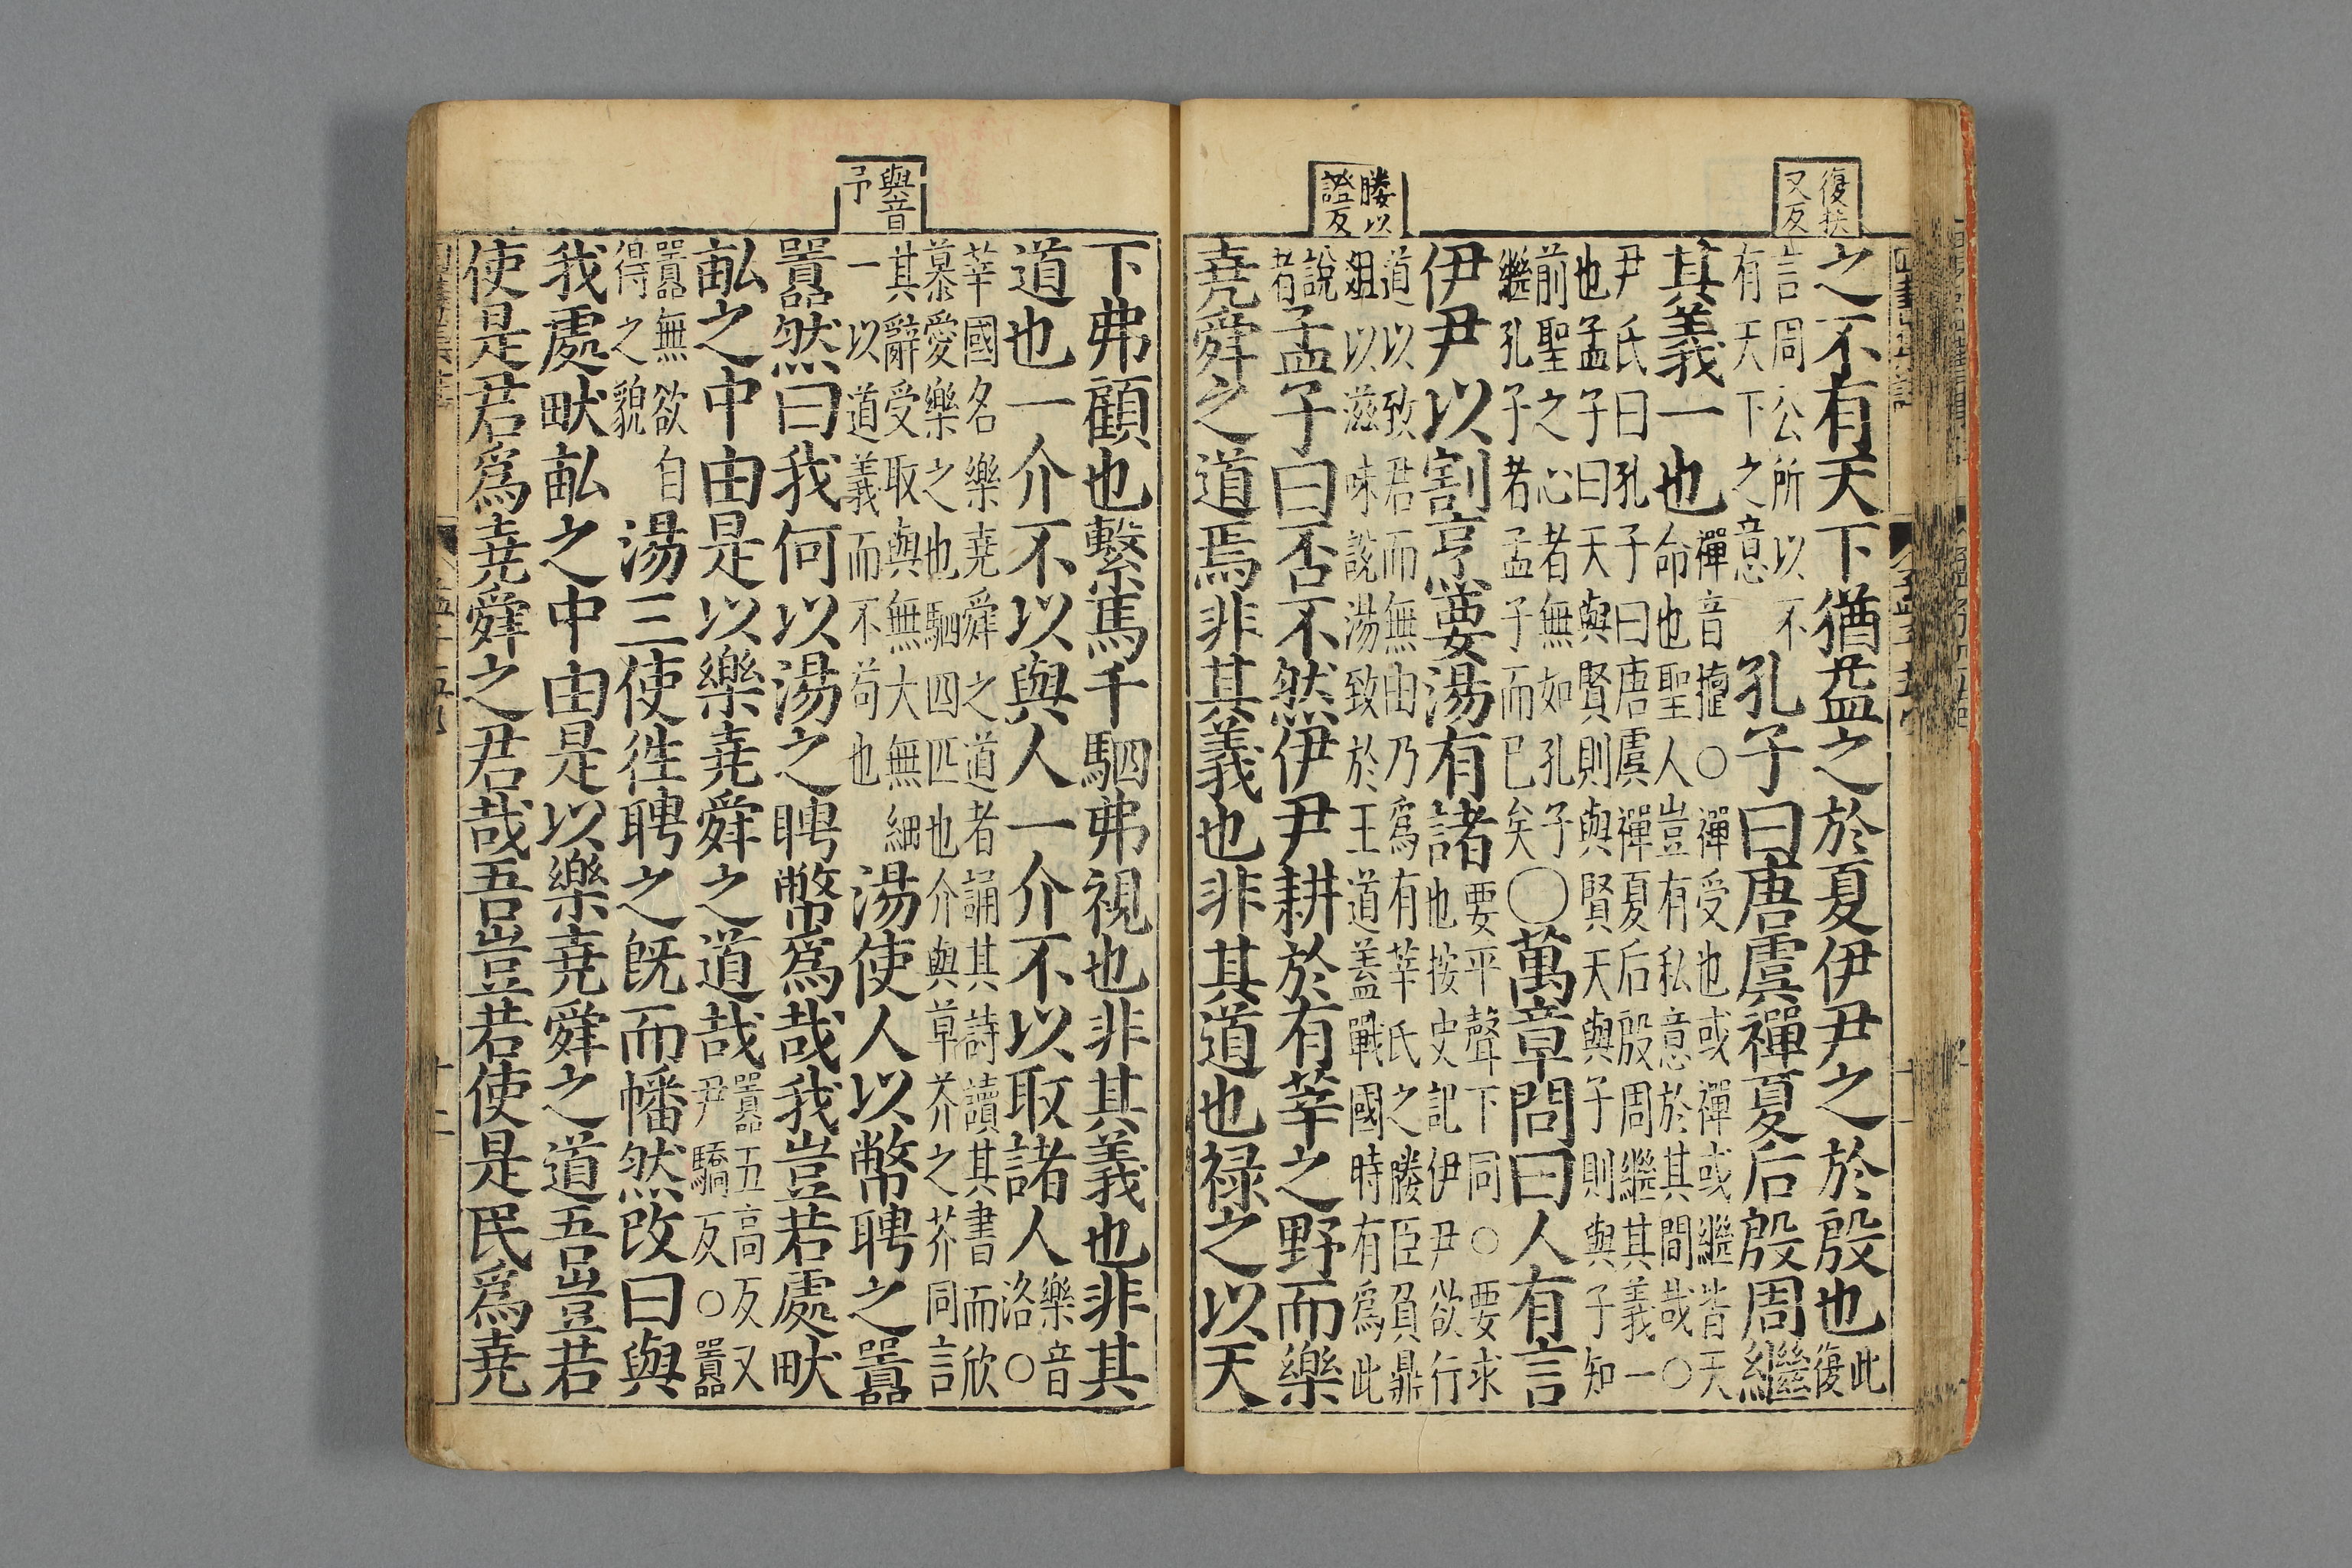 復扶
又反
之不有天下猶益之於夏伊尹之於殷也此
復
言周公所以不
有天下之意
孔子曰唐虞禪夏后殷周繼
其義一也
禪音擅○禪受也或禪或繼皆天
命也聖人豈有私意於其間哉○
尹氏曰孔子曰唐虞禪夏后殷周繼其義一
也孟子曰天與賢則與賢天與子則與子知
前聖之心者無如孔子
繼孔子者孟子而已矣
○萬章問曰人有言
伊尹以割烹要湯有諸
要平聲下同○要求
也按史記伊尹欲行
媵以
證反
道以致君而無由乃爲有莘氏之媵臣負鼎
俎以滋味說湯致於王道蓋戰國時有爲此
說
者
孟子曰否不然伊尹耕於有莘之野而樂
堯舜之道焉非其義也非其道也祿之以天
下弗顧也繫馬千駟弗視也非其義也非其
道也一介不以與人一介不以取諸人
樂音
洛○
莘國名樂堯舜之道者誦其詩讀其書而欣
慕愛樂之也駟四匹也介與草芥之芥同言
與音
予
其辭受取與無大無細
一以道義而不苟也
湯使人以幣聘之囂
囂然曰我何以湯之聘幣爲哉我豈若處畎
畝之中由是以樂堯舜之道哉
囂五高反又
尹驕反○囂
囂無欲自
得之貌
湯三使往聘之旣而幡然改曰與
我處畎畝之中由是以樂堯舜之道吾豈若
使是君爲堯舜之君哉吾豈若使是民爲堯